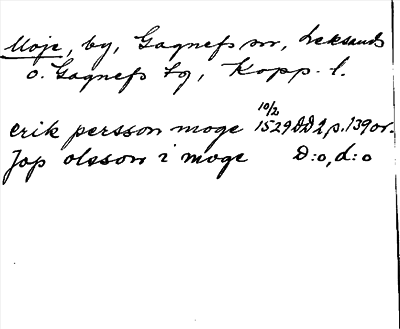 Moje, by, Gagnefs sn, Leksands
o. Gagnefs tg, Kopp. l.
erik persson moge 10/2 1529 DD 2, p. 139 or.
Jop olsson i moge D:o, d:o